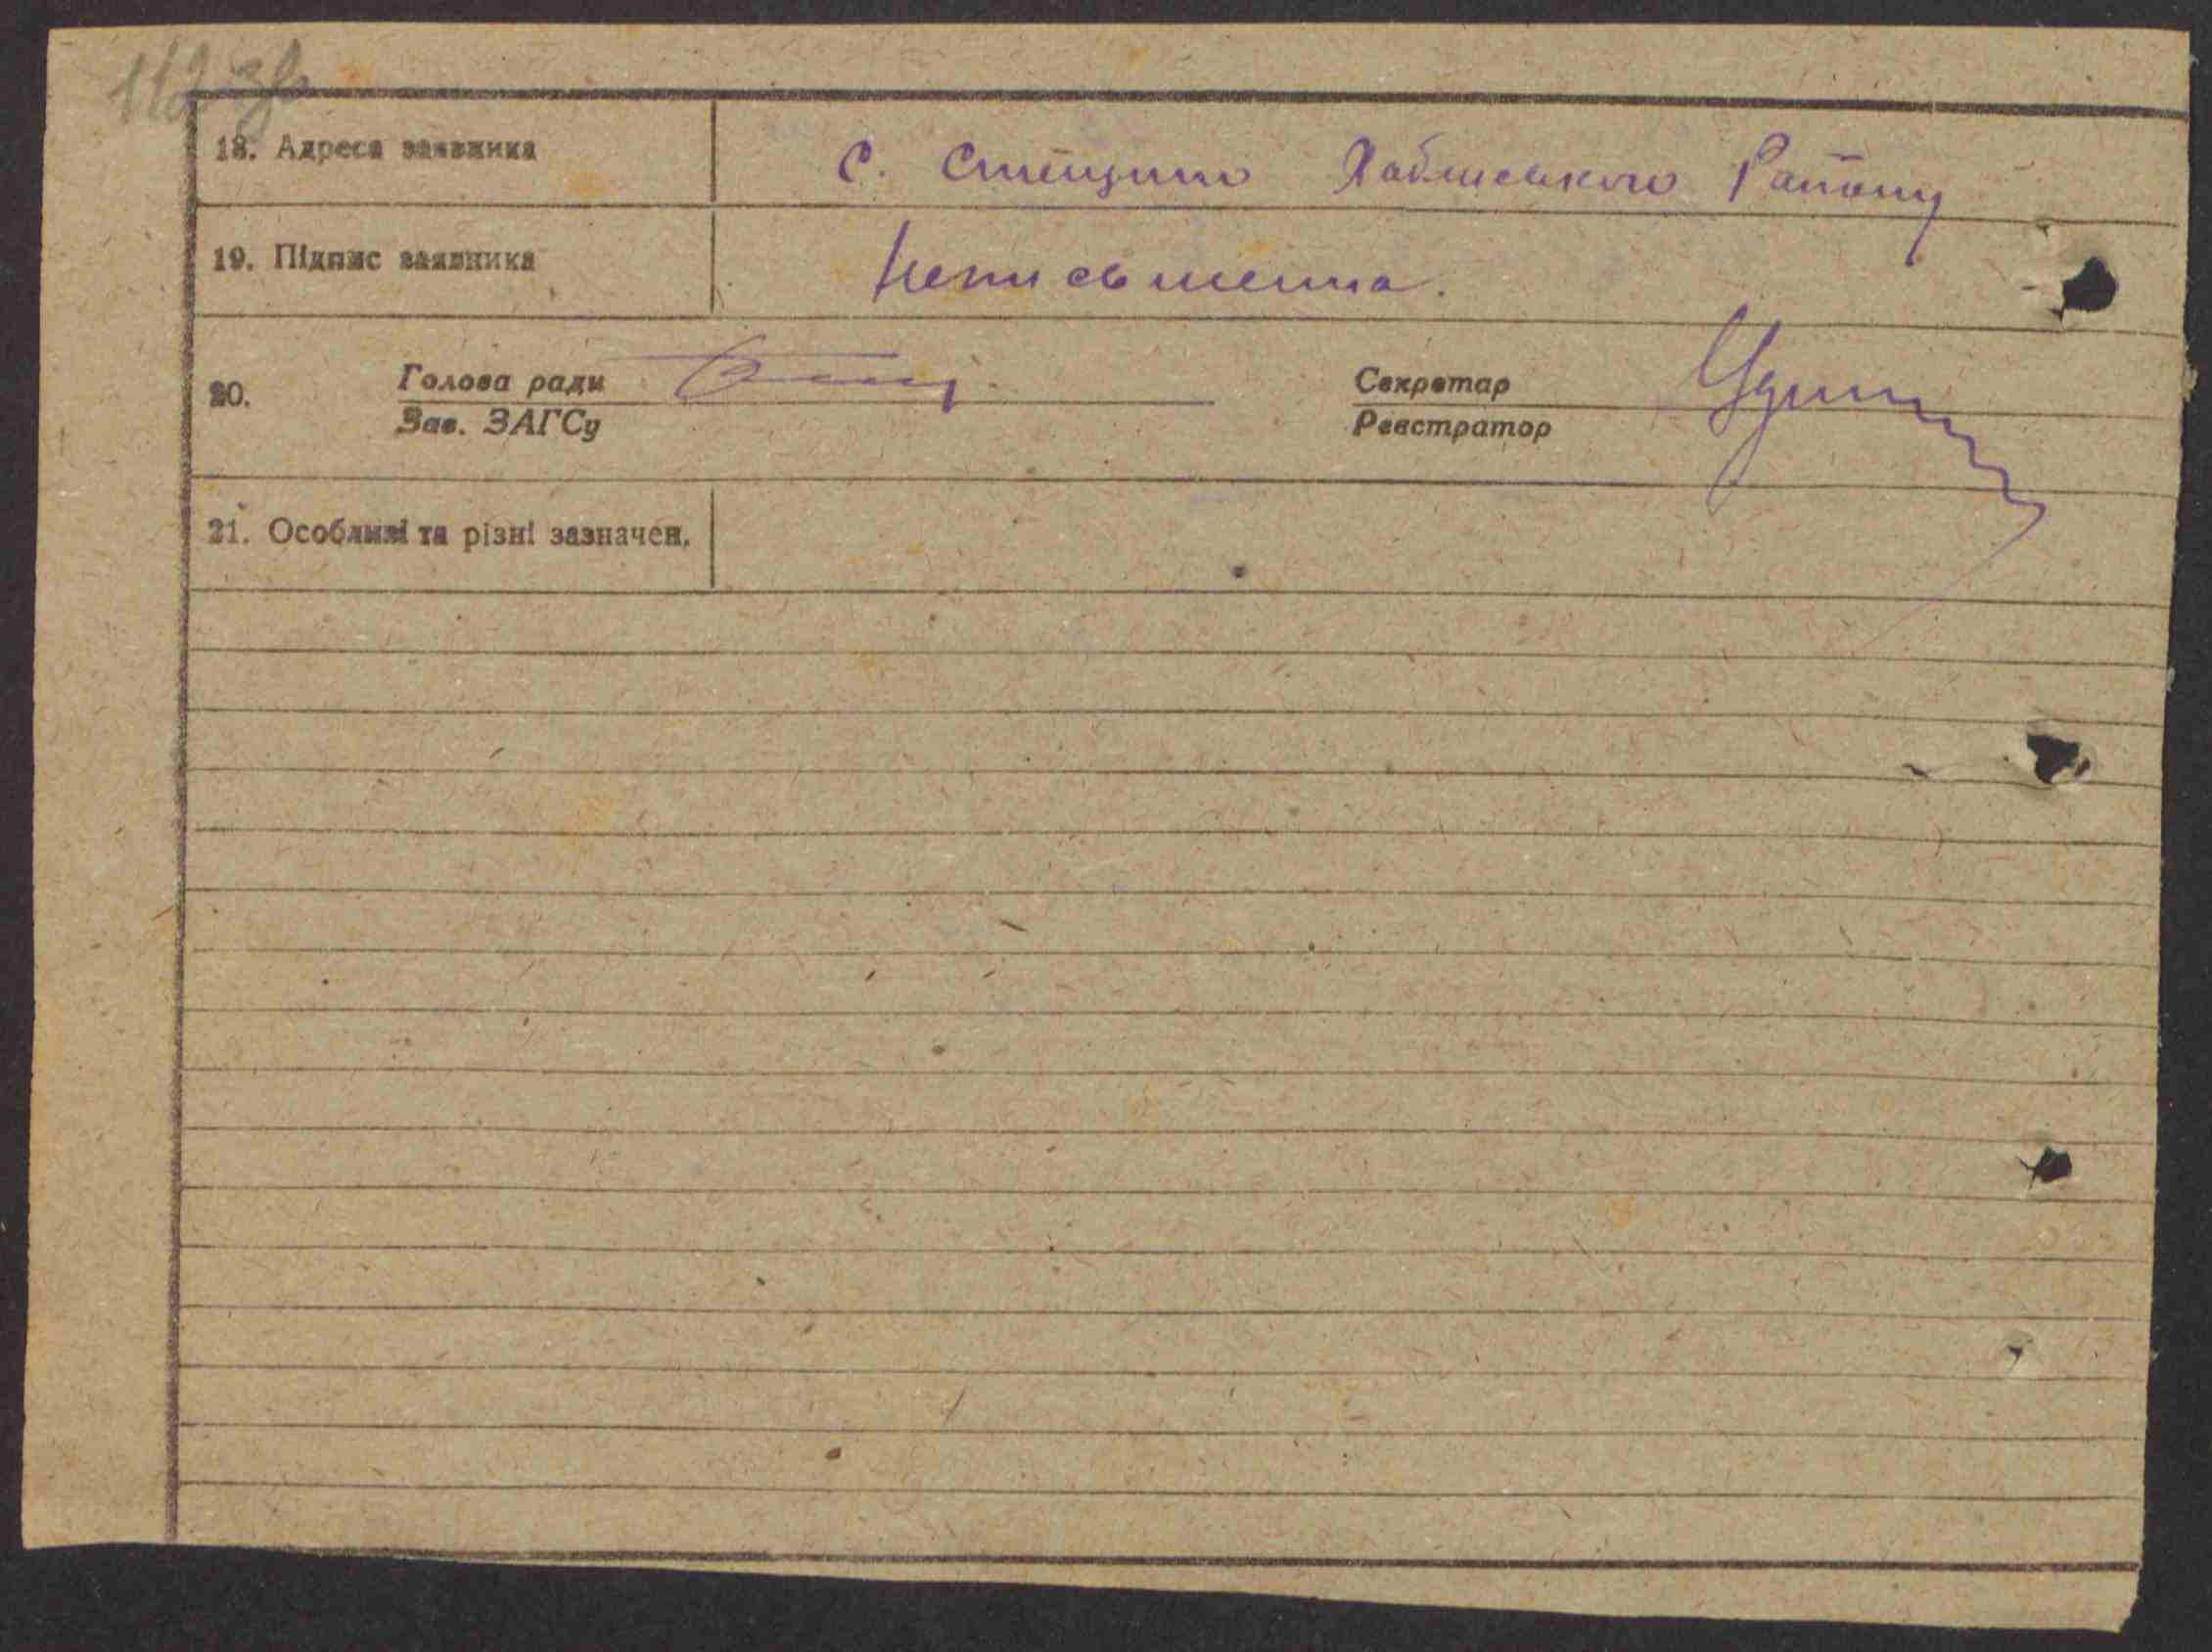 112 зв
18. Адреса заявника С. Стещино Хабнського Району
19. Підпис заявника Неписьменна.
20. Голова ради Секретар
Зав. ЗАГСу Реєстратор
21. Особливі та різні зазначен.